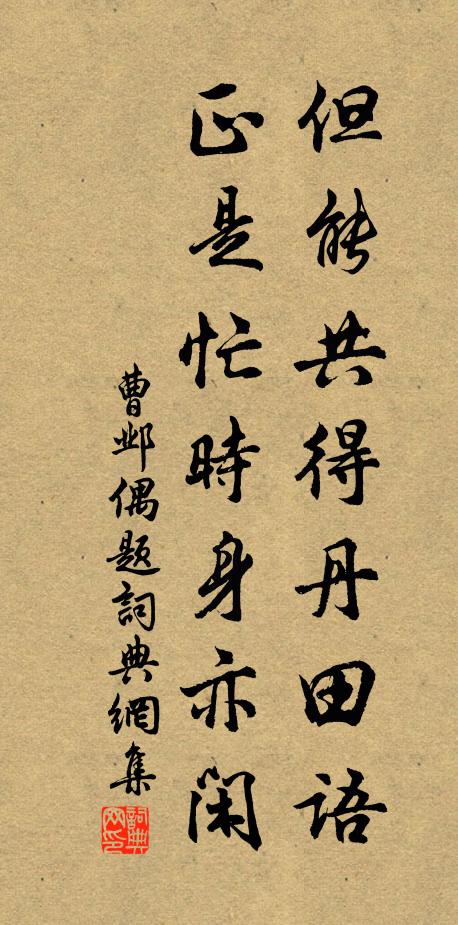 但能共得丹田語
正是忙時身亦閑
曹邺偶题詞典網集
詞典網印